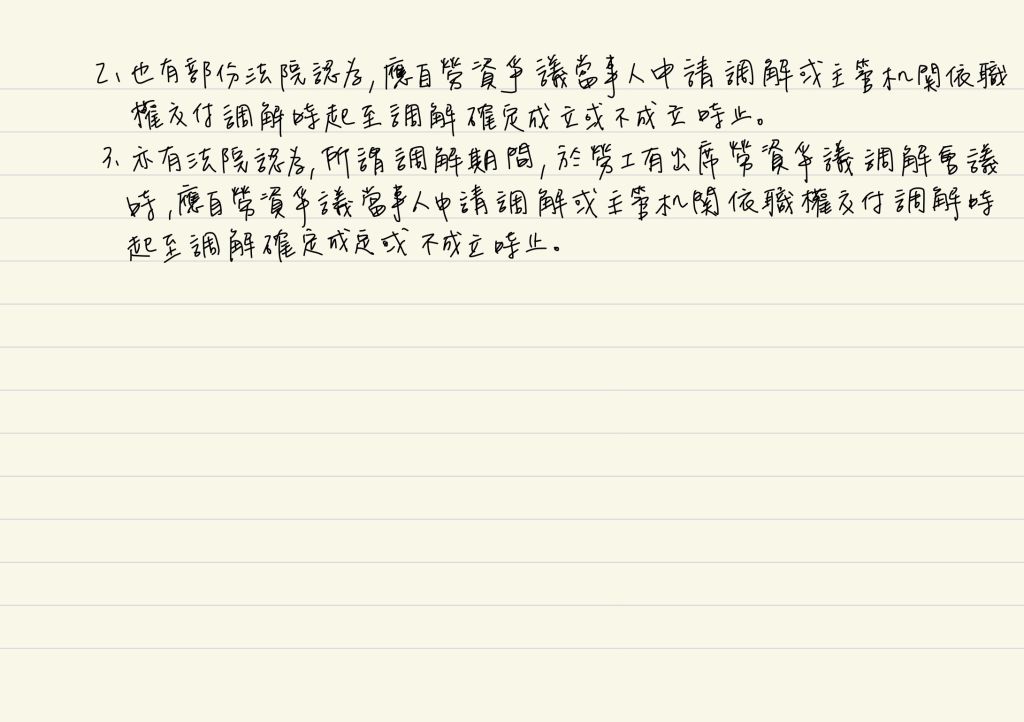 2、也有部份法院認為,應自勞資爭議當事人申請調解或主管机関依職
權交付調解時起至調解確定成立或不成立時止。
3、亦有法院認為,所謂調解期間,於勞工有出席勞資爭議調解會議
時,應自勞資爭議當事人申請調解或主管机関依職權交付調解時
起至調解確定成定或不成立時止。